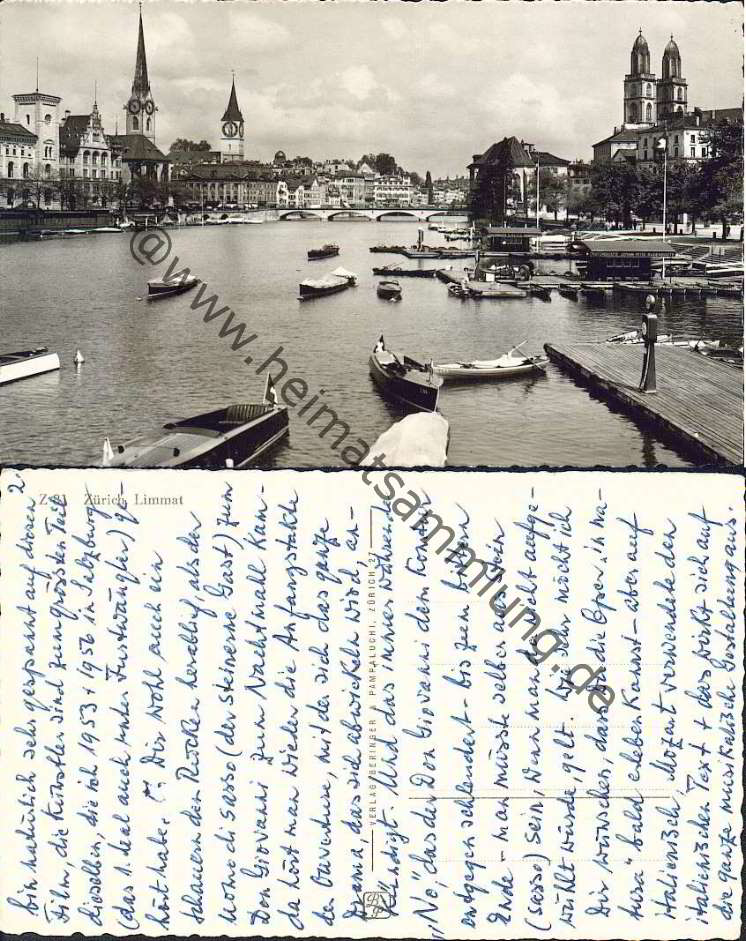 @ www.heimatsammlung.de
Z 91 Zürich Limmat
VERLAG BERINGER & PAMPALUCHI, ZÜRICH 27
2
bin natürlich sehr gespannt auf diesen
Film, die Künstler sind zum grössten Teil
dieselben, die ich 1953 + 1956 in Salzburg
(das 1. Mal auch unter Furtwängler) ge-
hört habe. Dir wohl auch ein
schauern den Rücken herablief, als der
Uomo di sasso (der steinerne Gast) zum
Don Giovanni zum Nachtmahl kam
da hört man wieder die Anfangstakte
der Ouverture, mit der sich das ganze
Drama, das sich abwickeln wird, an-
kündigt. Und das immer währende
"No", das der Don Giovanni dem Komtur
entgegenschleudert - bis zum bitteren
Ende - man müsste selber aus Stein
(sasso) sein, wenn man da nicht aufge-
wühlt würde, gelt. Wie sehr möcht ich
Dir wünschen, dass Du die Oper in na-
tura bald erleben kannst - aber auf
italienisch, Mozart verwendete den
italienischen Text + das wirkt sich auf
die ganze musikalische Gestaltung aus.